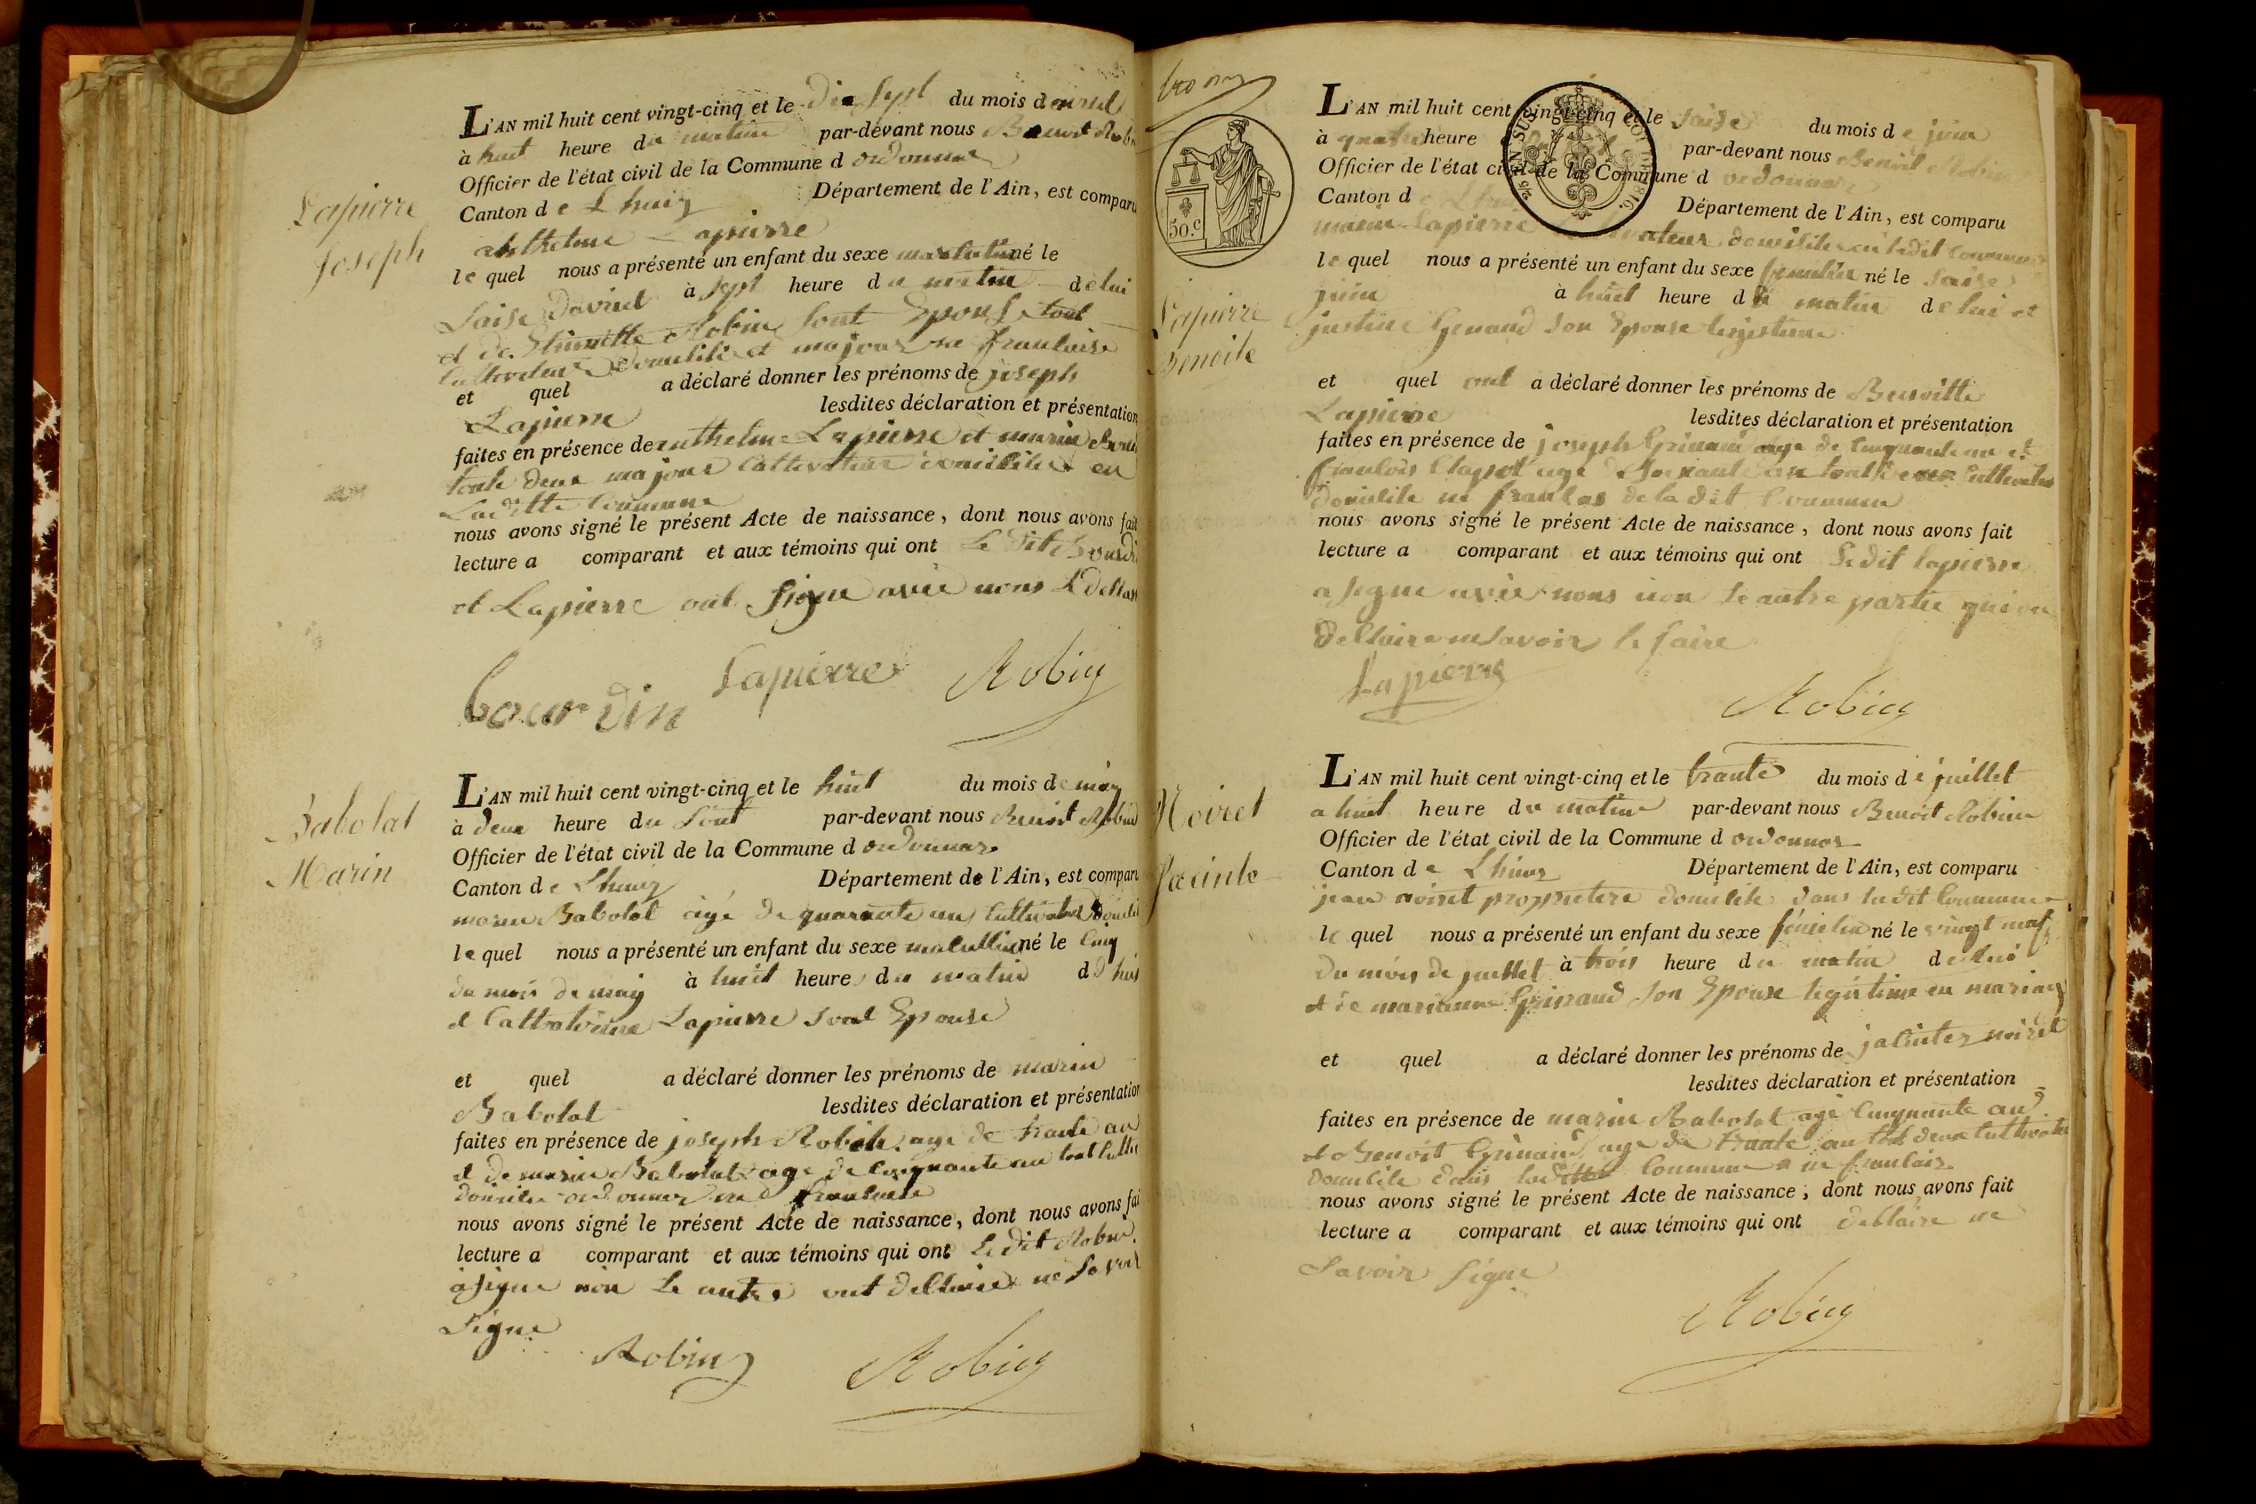 Lapierre
Joseph
L'AN mil huit cent vingt-cinq et le Dix Sept du mois d avril
à huit heure du matin par-devant nous Benoit Robin
Officier de l'état civil de la Commune d ordonnas
Canton de Lhuis Département de l'Ain, est comparu
anthelme Lapierre
le quel nous a présenté un enfant du sexe masculin né le
Saise davril à Sept heure du matin de lui
et de Robin Sont Epouse tout
Cultivateur domicilie et majour ne franlaise
et quel a déclaré donner les prénoms de joseph
Lapierre lesdites déclaration et présentation
faites en présence de anthelme Lapierre et marin
toute deux majour Cultivateur domicilie en
Laditte Commune
nous avons signé le présent Acte de naissance, dont nous avons fait
lecture a comparant et aux témoins qui ont Le Dit Bourdin
et Lapierre ont Signe avec nous
bourdin Lapierre Robin
Babolat
Marin
L'AN mil huit cent vingt-cinq et le huit du mois de may
à deux heure du Soir par-devant nous Benoit Robin
Officier de l'état civil de la Commune d ordonnas
Canton de Lhuis Département de l'Ain, est comparu
marin Babolat agé de quarante un Cultivateur
le quel nous a présenté un enfant du sexe masculin né le Cinq
du mois de may à huit heure du matin de lui
et Lapierre Epouse
et quel a déclaré donner les prénoms de marin
Babolat lesdites déclaration et présentation
faites en présence de joseph Robin age de trante an
et de marin Babolat age de Cinquante an tout
domicilie ordonnas
nous avons signé le présent Acte de naissance, dont nous avons fai
lecture a comparant et aux témoins qui ont Ledit Robin
a signe non Le autre ont dellaire ne Savoir
Signe
Robin Robin
50.c
Lapierre
Benoite
L'AN mil huit cent vingt-cinq et le Saise du mois de juin
à quatre heure par-devant nous Benoit Robin
Officier de l'état civil de la Commune d ordonnas
Canton de Département de l'Ain, est comparu
marin Lapierre domicilie
le quel nous a présenté un enfant du sexe feminin né le Saise
juin à huit heure du matin de lui et
justine Genaud Son Epouse legistime
et quel ont a déclaré donner les prénoms de Benoitte
Lapierre lesdites déclaration et présentation
faites en présence de joseph age de Cinquante an et
age Soixante an tout deux Cultivateur
domicilie de la dit Commune
nous avons signé le présent Acte de naissance, dont nous avons fait
lecture a comparant et aux témoins qui ont Ledit lapierre
a Signe avec nous non le autre partie qui on
dellaire ne Savoir le faire
Lapierre Robin
Noiret
Jacinte
L'AN mil huit cent vingt-cinq et le trante du mois de juillet
a huit heure du matin par-devant nous Benoit Robin
Officier de l'état civil de la Commune d ordonnas
Canton de Lhuis Département de l'Ain, est comparu
jean noiret proprietere domicilie dans la dit Commune
le quel nous a présenté un enfant du sexe féminin né le vingt neuf
Du mois de juillet à trois heure du matin de lui
et de marianne Son Epouse legistime en mariage
et quel a déclaré donner les prénoms de jacinte noiret
lesdites déclaration et présentation
faites en présence de marin Babolat agé Cinquante an
et Benoit age de trante an tout deux Cultivateur
Domicilie dans laditte Commune
nous avons signé le présent Acte de naissance, dont nous avons fait
lecture a comparant et aux témoins qui ont dellaire ne
Savoir Signe
Robin